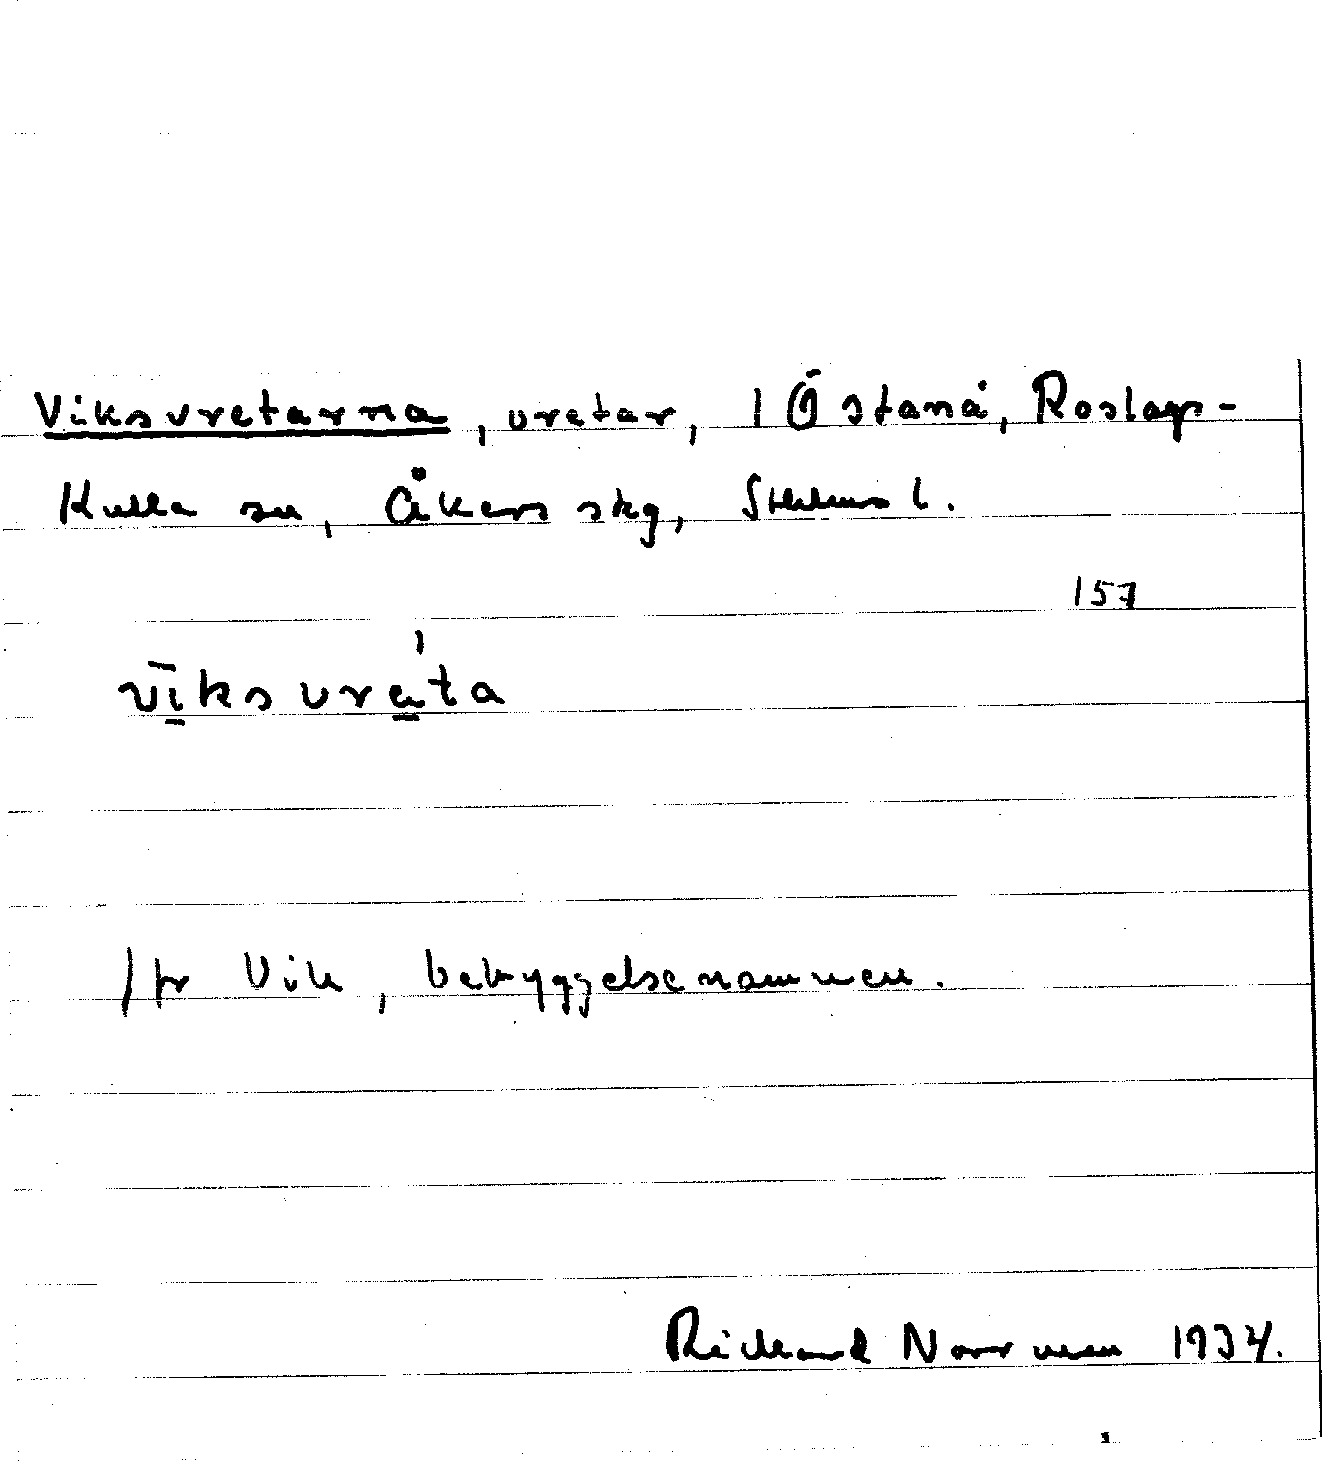 Viksvretarna, vretar, 1 Östanå, Roslags-
Kulla sn, Åkers skg, Sthlms l.
157
vi̱̅ksvrèta
/fr Vik, bebyggelsenamnen.
Richard Norrman 1934.